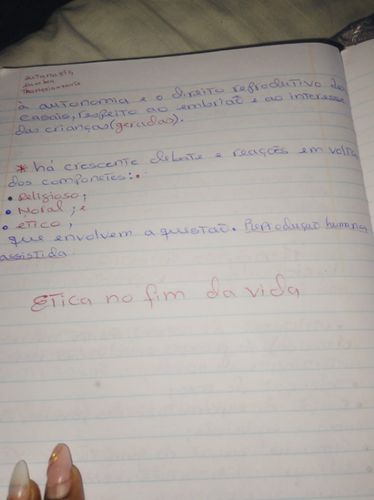 à autonomia e o direito reprodutivo dos
casais, respeito ao embrião e ao interesse
das crianças (geradas).
* há crescente debate e reações em volta
dos componetes:
• Religioso;
• Moral; e
• ético,
que envolvem a questão. Reprodução humana
assistida.
Etica no fim da vida